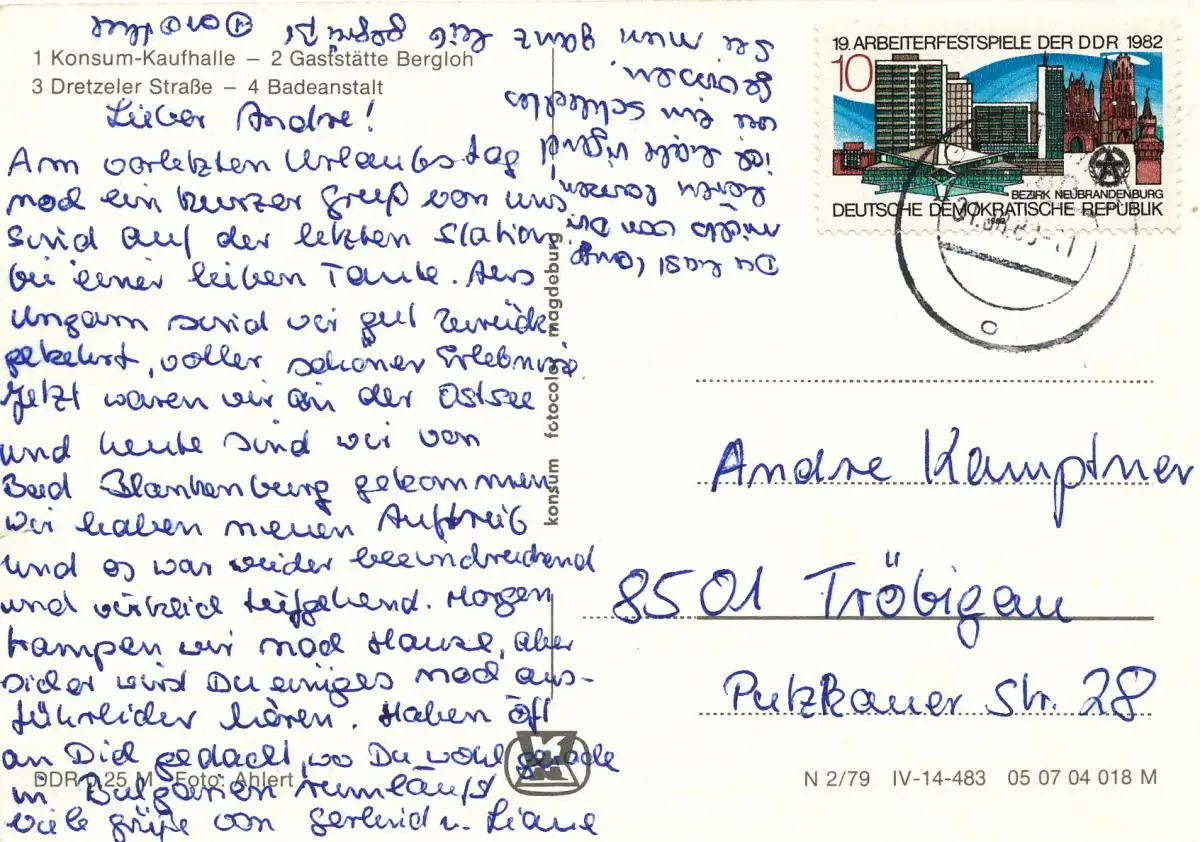 1 Konsum-Kaufhalle – 2 Gaststätte Bergloh
3 Dretzeler Straße – 4 Badeanstalt
Lieber Andre!
Am vorletzten Urlaubstag
noch ein kurzer Gruß von uns
Sind auf der letzten Station
bei einer lieben Tante. Aus
Ungarn sind wir gut zurück
gekehrt, voller schöner Erlebnisse.
Jetzt waren wir an der Ostsee
und heute sind wir von
Bad Blankenburg gekommen
wir haben neuen Auftrieb
und es war wieder beeindruckend
und wirklich tiefgehend. Morgen
trampen wir nach Hause, aber
sicher wirst Du einiges noch aus-
führlicher hören. Haben oft
an Dich gedacht, wo Du wohl gerade
in Bulgarien rumläufst
viele Grüße von Gerhild u. Liane
Du hast lang
nichts von Dir
hören lassen,
ist nicht irgend
wer ein
gewesen.
Sei nun ganz lieb gegrüßt
konsum fotocolor magdeburg
DDR 0,25 M Foto: Ahlert
19. ARBEITERFESTSPIELE DER DDR 1982
10
BEZIRK NEUBRANDENBURG
DEUTSCHE DEMOKRATISCHE REPUBLIK
1982
c
Andre Kamptner
8501 Tröbigau
Putzkauer Str. 28
N 2/79 IV-14-483 05 07 04 018 M